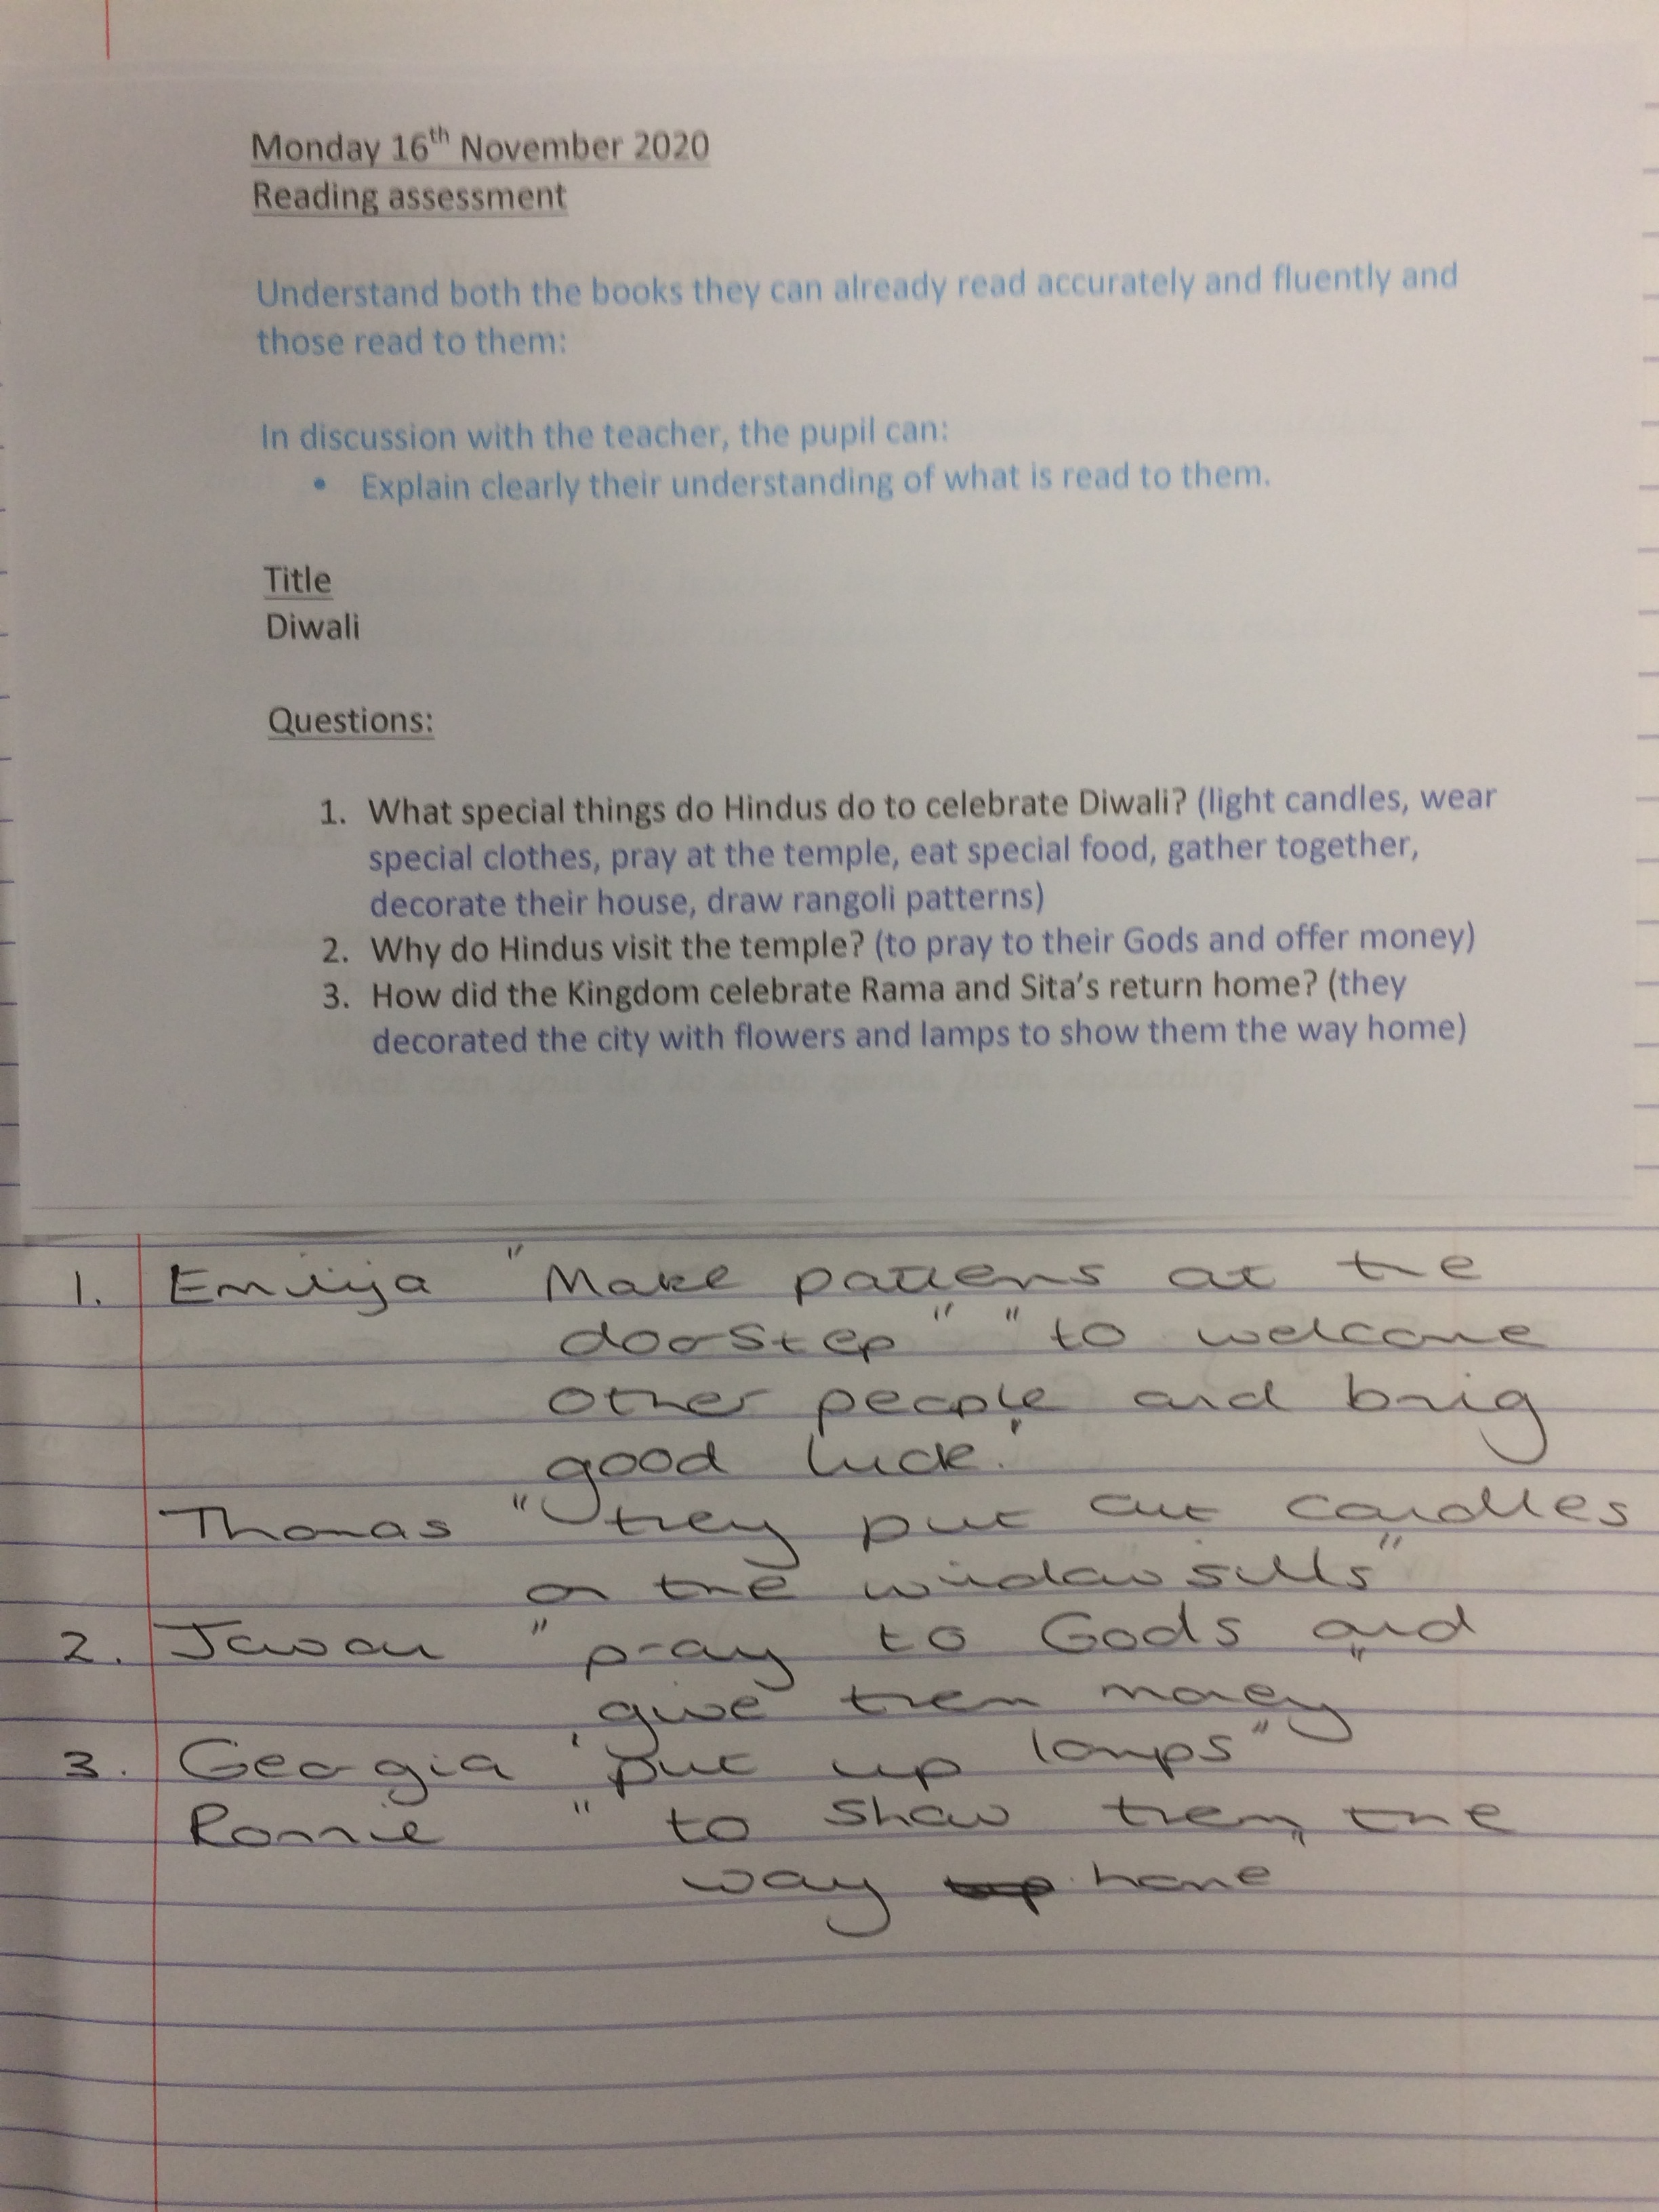 Monday 16th November 2020
Reading assessment
Understand both the books they can already read accurately and fluently and
those read to them:
In discussion with the teacher, the pupil can:
• Explain clearly their understanding of what is read to them.
Title
Diwali
Questions:
1. What special things do Hindus do to celebrate Diwali? (light candles, wear
special clothes, pray at the temple, eat special food, gather together,
decorate their house, draw rangoli patterns)
2. Why do Hindus visit the temple? (to pray to their Gods and offer money)
3. How did the Kingdom celebrate Rama and Sita's return home? (they
decorated the city with flowers and lamps to show them the way home)
1. "Make patterns at the
doorstep" "to welcome
other people and bring
good luck."
Thomas "they put out candles
on the windowsills"
2. "pray to Gods and
give them money"
3. Georgia "put up lamps"
Ronnie "to show them the
way home"